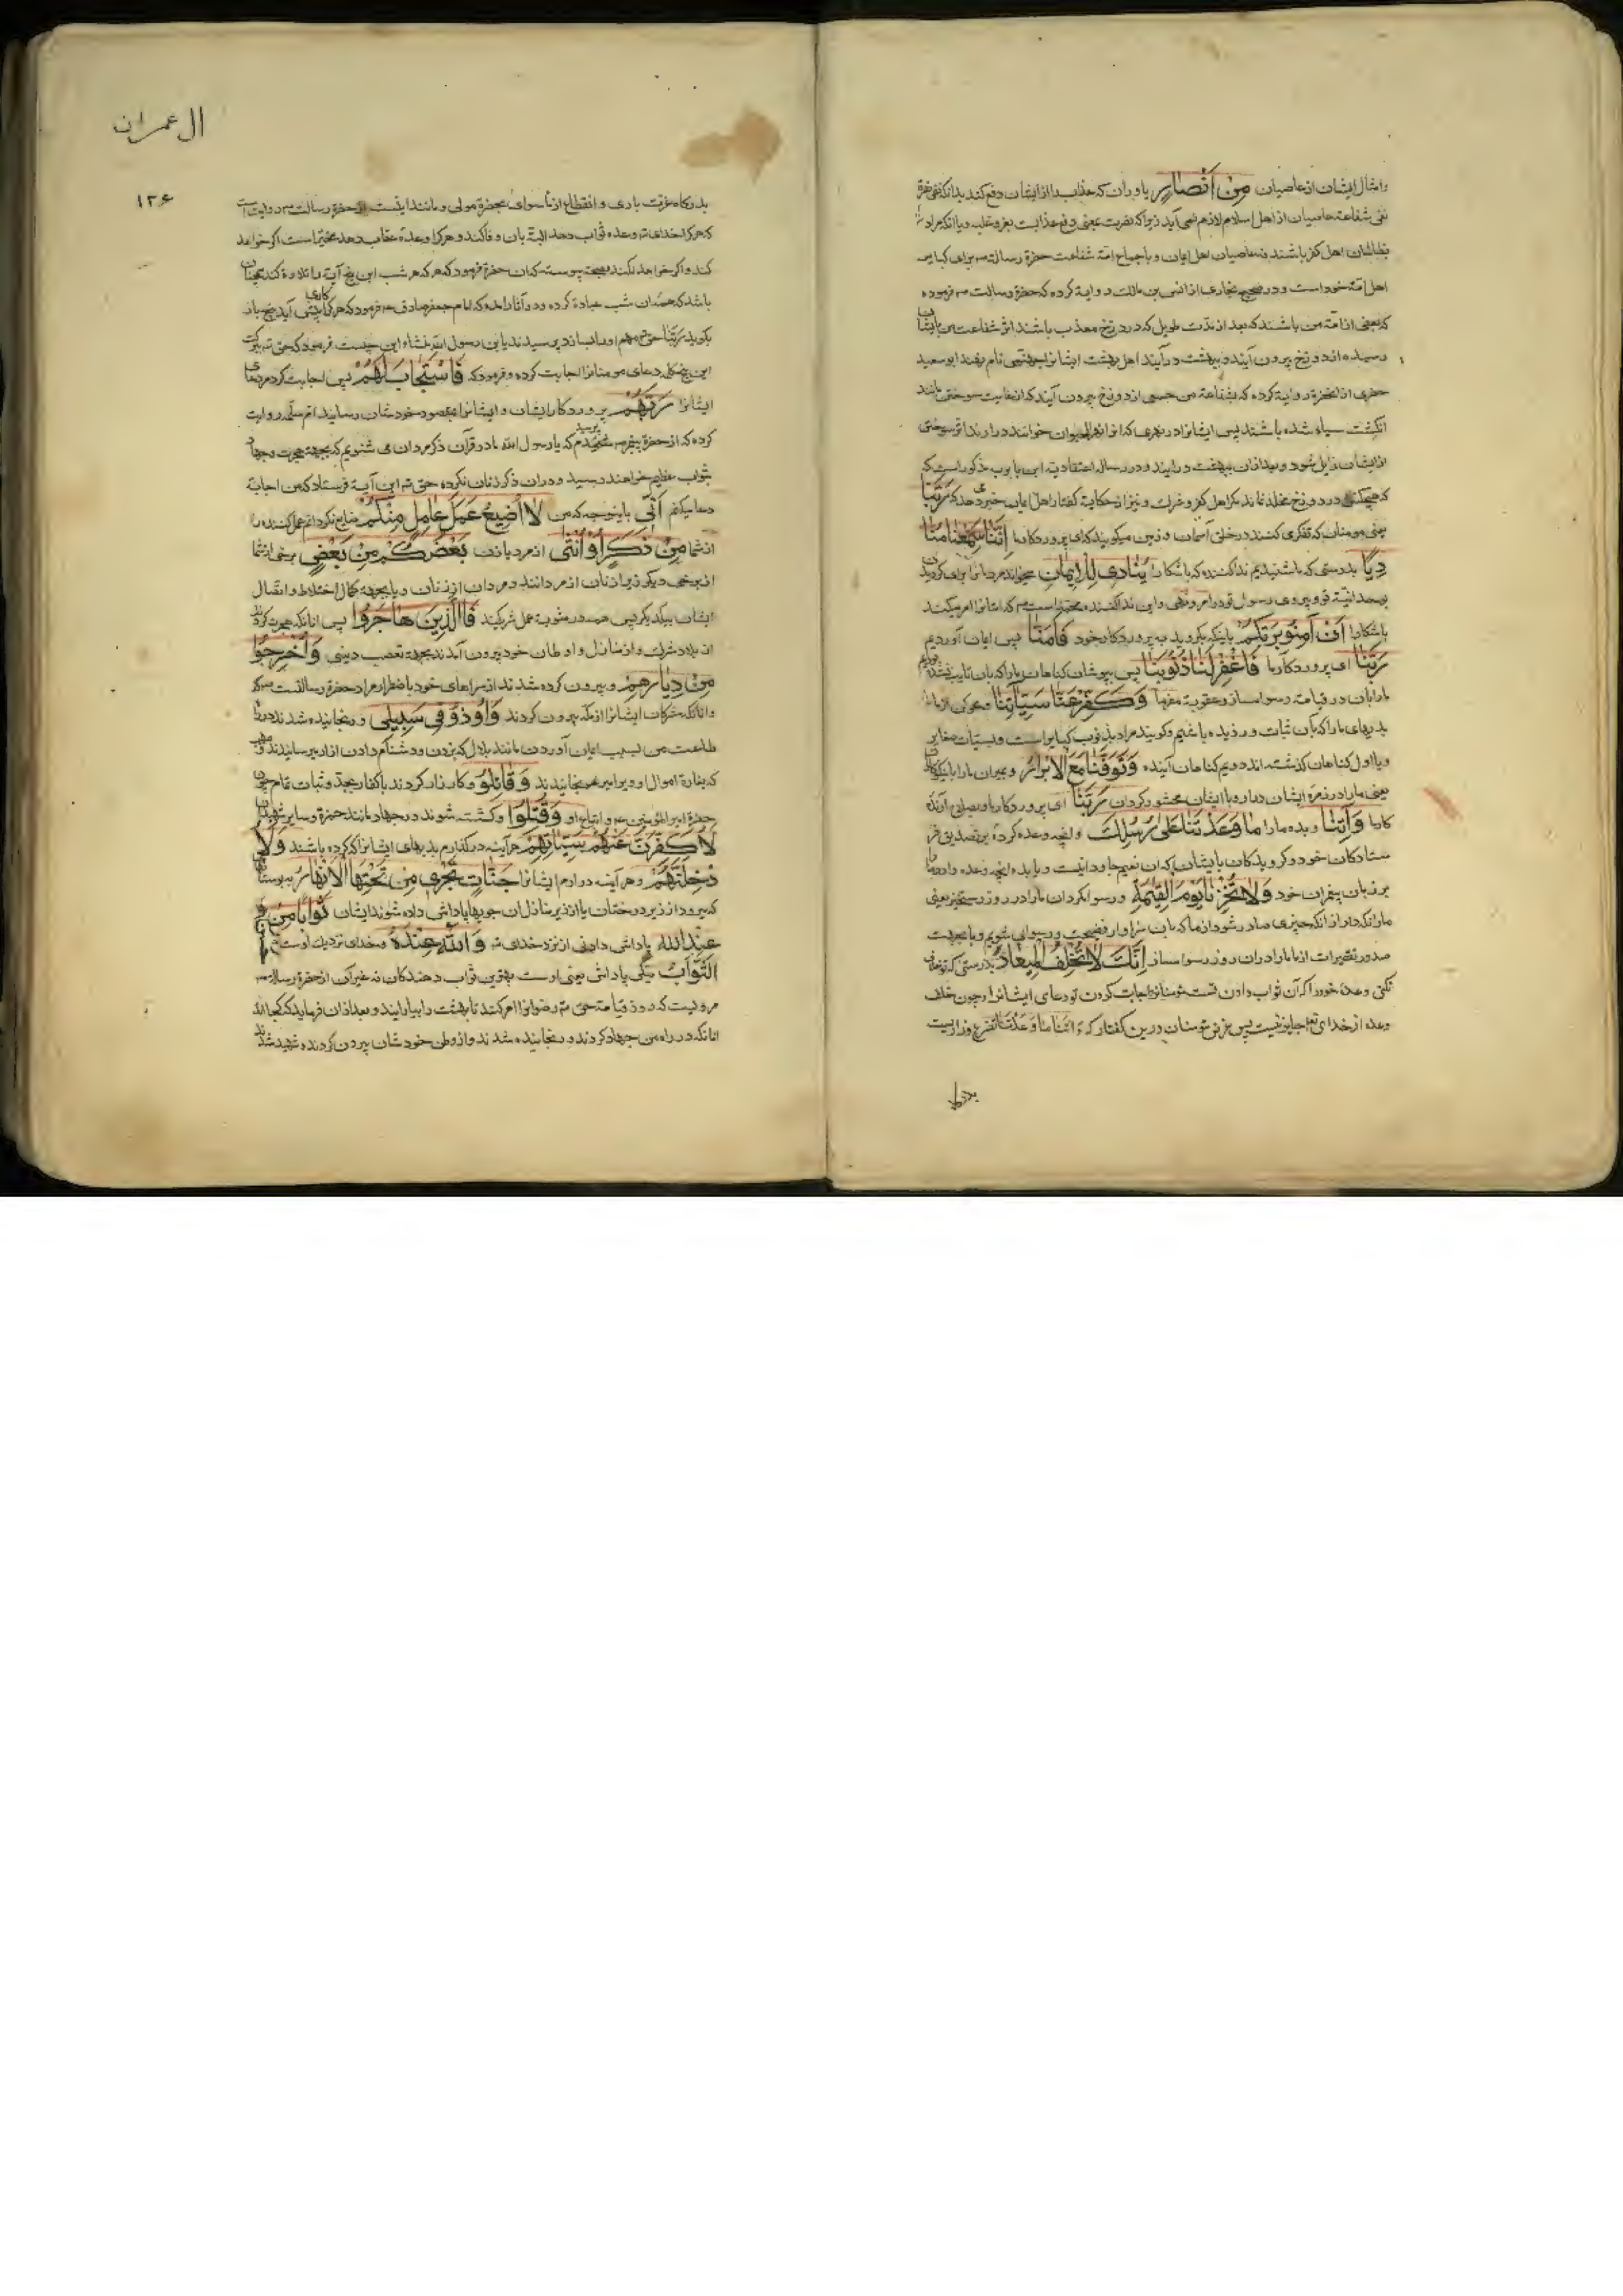 وامثال ایشان از عاصیان مِنْ اَنْصَارٍ یاوران که عذاب را از ایشان دفع کند بدانکه نفی نصرة
نفی شفاعة عاصیان از اهل اسلام لازم نمی آید زیرا که نصرت یعنی دفع عذابست بقهر و غلبه ویا آنکه مراد
بظالمان اهل کفر باشند نه عاصیان اهل ایمان و باجماع امة شفاعت حضرة رسالت برای کبایر
اهل امة خود است و در صحیح بخاری از انس بن مالک روایة کرده که حضرة رسالت فرموده
که بعضی از امة من باشند که بعد از مدت طویل که در دوزخ معذب باشند اثر شفاعت من بایشان
رسیده از دوزخ بیرون آیند و ببهشت در آیند اهل بهشت ایشانرا جهنمی نام نهند ابو سعید
خدری از انحضرة روایة کرده که بشفاعة من جمعی از دوزخ بیرون آیند که از غایت سوختن مانند
انگشت سیاه شده باشند پس ایشانرا در نهری که انرا نهر الحیوان خوانند در ارند اثر سوختن
از ایشان زایل شود و بعد ازان ببهشت در ایند و در رساله اعتقادیه ابن بابویه مذکور است که
که هیچکس در دوزخ مخلد نماند مگر اهل کفر و شرک و نیز از حکایة گفتار اهل ایمان خبر میدهد که رَبَّنَا
یعنی مومنان که تفکر می کنند در خلق آسمان و زمین میکویند که ای پروردکار ما اِنَّنَا سَمِعْنَا مُنَا
دِیًا بدرستی که ما شنیدیم ندا کننده که باشکارا یُنَادِی لِلْاِیمَانِ میخواند مردمانرا برای کرویدن
بوحدانیة تو و پیروی رسول تو در امر و نهی و این ندا کننده محمد است که امتانرا امر میکند
باشکارا اَنْ اٰمِنُوا بِرَبِّکُمْ باینکه بکروید به پروردکار خود فَاٰمَنَّا پس ایمان آوردیم
رَبَّنَا ای پروردکار ما فَاغْفِرْلَنَا ذُنُوبَنَا پس بپوشان کناهان ما را که بان تایب نشده
ما را بان در قیامة رسوا مساز و عقوبة مفرما وَکَفِّرْ عَنَّا سَیِّاٰتِنَا و محو کن از ما
بدیهای ما را که بآن ثبات ورزیده باشیم و کویند مراد بذنوب کبایر است و بسیئات صغایر
ویا اول کناهان کذشته اند و دویم کناهان آینده وَتَوَفَّنَا مَعَ الْاَبْرَارِ و بمیران ما را با نیکوکاران
یعنی ما را در زمرة ایشان درار و با ایشان محشور کردان رَبَّنَا ای پروردکار ما و بصلاح آرنده
کار ما وَاٰتِنَا و بده ما را مَا وَعَدْتَنَا عَلٰی رُسُلِکَ و انچه وعده کردۀ بر تصدیق فر
ستادکان خود و کرویدکان بایشان که ان نعیم جاودانیست و یا بده انچه وعده دادۀ ما را
بر زبان پیغمبران خود وَلَا تُخْزِنَا یَوْمَ الْقِیٰمَةِ و رسوا مکردان ما را در روز رستخیز یعنی
ما را نکه دار از انکه چیزی صادر شود از ما که بان سزاوار فضیحت و رسوایی شویم و یا بجهت
صدور تقصیرات از ما ما را دران روز رسوا مساز اِنَّکَ لَا تُخْلِفُ الْمِیعَادَ بدرستی که تو خلاف
نکنی وعدۀ خود را که آن ثواب دادن است مومنانرا و اجابت کردن تو دعای ایشانرا و چون خلف
وعده از خدای تعالی جایز نیست پس غرض مومنان درین کفتار که اٰتِنَا مَا وَعَدْتَنَا تضرع و زاریست
بدرکاه
ال عمران
۱۳۶
بدرکاه عزت باری و انقطاع از ماسوای بحضرة مولی و مانند اینست از حضرة رسالت روایت است
که هر کرا خدای وعده ثواب دهد البتة بان وفا کند و هر کرا وعدۀ عقاب دهد مخیر است اکر خواهد
کند و اکر خواهد نکند بصحة پیوسته که ان حضرة فرمود که هر که هر شب این پنج آیة را تلاوة کند چنان
باشد که همۀ ان شب عبادة کرده و در آثار امده که امام جعفر صادق فرمود که هر کرا کاری پیش آید پنج بار
بکوید رَبَّنَا حق مهم او را بسازد پرسیدند یابن رسول الله منشاء این چیست فرمود که حق ببرکت
این پنج کلمه دعای مومنانرا اجابت کرده و فرمود که فَاسْتَجَابَ لَهُمْ پس اجابت کرد مر دعای
ایشانرا رَبُّهُمْ پروردکار ایشان و ایشانرا بمقصود خودشان رسانید ام سلمه روایت
کرده که از حضرة پیغمبر پرسیدم که یا رسول الله ما در قرآن ذکر مردان می شنویم که بجهة هجرت و جهاد
بثواب عظیم خواهند رسید و دران ذکر زنان نکرده حق این آیة فرستاد که من اجابة
دعا میکنم اَنِّی باینوجه که من لَا اُضِیعُ عَمَلَ عَامِلٍ مِنْکُمْ ضایع نکردانم عمل کننده را
از شما مِنْ ذَکَرٍ اَوْ اُنْثٰی از مرد یا زن بَعْضُکُمْ مِنْ بَعْضٍ برخی از شما
از برخی دیکر زیرا زنان از مردانند و مردان از زنان و یا بجهة کمال اختلاط و اتصال
ایشان بیکدیکر پس همه در مثوبة عمل شریکند فَالَّذِینَ هَاجَرُوا پس انانکه هجرت کردند
از بلاد شرک و از منازل و اوطان خود بیرون آمدند بجهة تعصب دینی وَاُخْرِجُوا
مِنْ دِیَارِهِمْ و بیرون کرده شدند از سراهای خود باضطرار مراد حضرة رسالتست
و انانکه مشرکان ایشانرا از مکه بیرون کردند وَاُوذُوْ فِی سَبِیلِی و رنجانیده شدند در راه
طاعت من بسبب ایمان آوردن مانند بلال که بزدن و دشنام دادن ازار میرسانیدند و
که بغارة اموال او ویرا میرنجانیدند وَقَاتَلُوْ و کارزار کردند با کفار بحجة و ثبات تمام چون
حضرة امیرالمؤمنین و اتباع او وَقُتِلُوْا و کشته شوند در جهاد مانند حمزة و سایر شهیدان
لَاُکَفِّرَنَّ عَنْهُمْ سَیِّاٰتِهِمْ هر آینه در کذارم بدیهای ایشانرا که کرده باشند وَلَاُ
دْخِلَنَّهُمْ و هر آینه در ارم ایشانرا جَنَّاتٍ تَجْرِی مِنْ تَحْتِهَا الْاَنْهَارُ ببوستانها
که میرود از زیر درختان یا از زیر منازل ان جویها پاداش داده شوند ایشان ثَوَابًا مِنْ
عِنْدِ اللّٰهِ پاداش دادنی از نزد خدای وَاللّٰهُ عِنْدَهُ و خدای نزدیک اوست حُسْنُ
الثَّوَابِ نیکی پاداش یعنی اوست بهترین ثواب دهندکان نه غیر آن از حضرة رسالت
مرویست که روز قیامة حق رضوانرا امر کند تا بهشت را بیارایند و بعد ازان فرماید که کجااند
انانکه در راه من جهاد کردند و رنجانیده شدند و از وطن خودشان بیرون کردند و شهید شدند